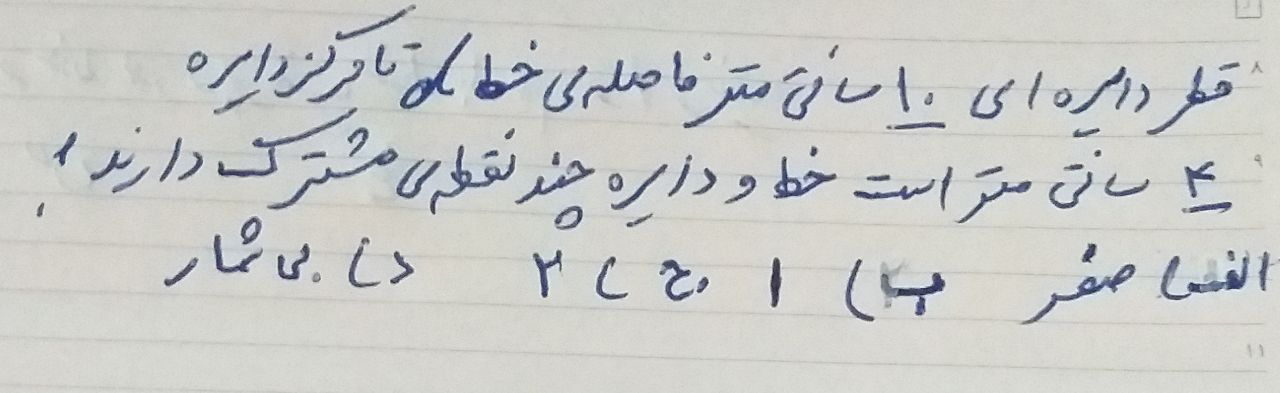 قطر دایره ای ۱۰ سانتی متر فاصله ی خط d تا مرکز دایره
۴ سانتی متر است خط و دایره چند نقطه ی مشترک دارند ؟
الف) صفر ب) ۱ ج) ۲ د) بی شمار